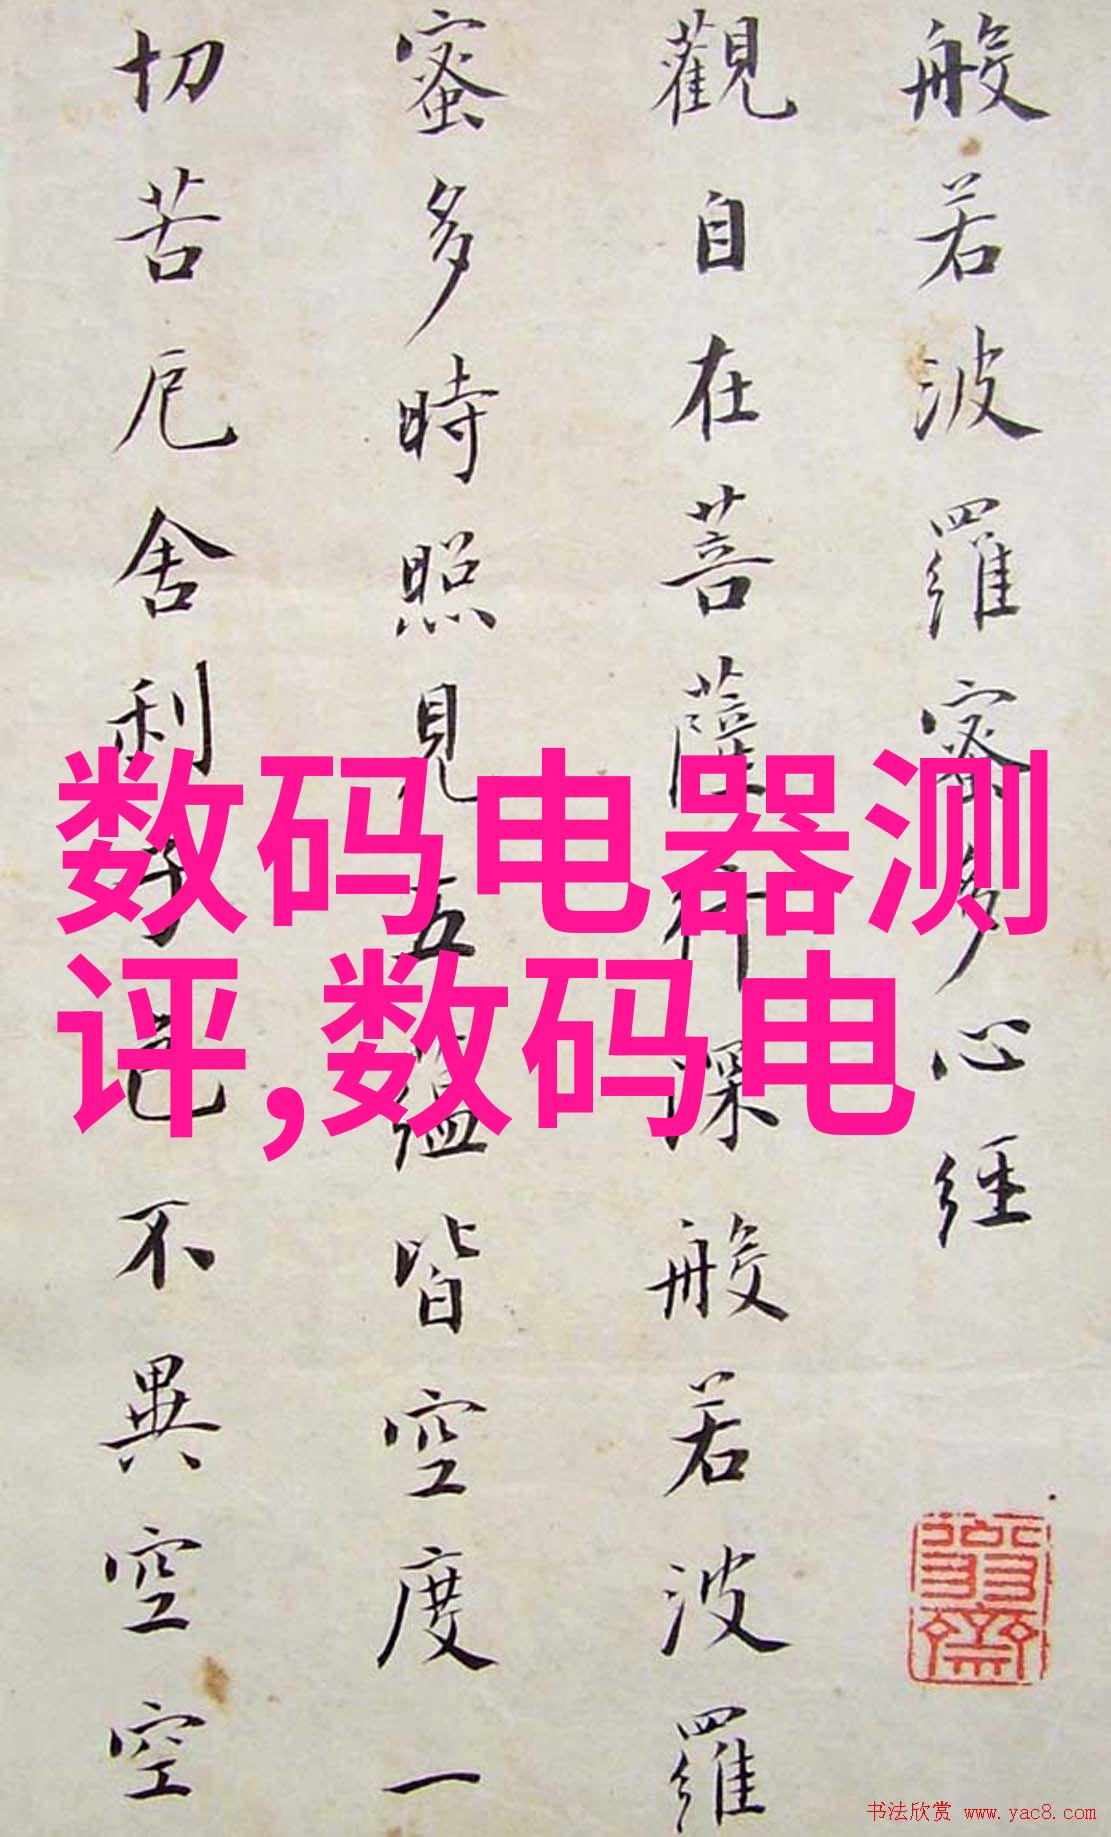 般若波羅蜜多心經
觀自在菩薩行深般若波羅
蜜多時照見五蘊皆空度一
切苦厄舍利子色不異空空
数码电器测
评,数码电
书法欣赏 www.yac8.com